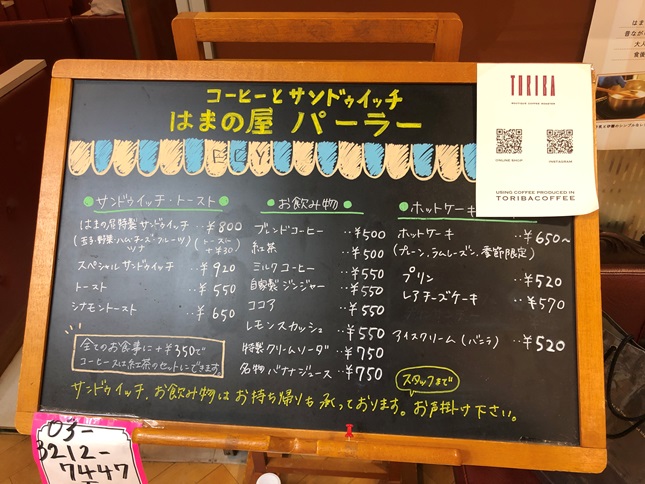 コーヒーとサンドゥイッチ
はまの屋 パーラー
TORIBA
BOUTIQUE COFFEE ROASTER
ONLINE SHOP
INSTAGRAM
USING COFFEE PRODUCED IN
TORIBACOFFEE
サンドゥイッチ・トースト
はまの屋特製サンドゥイッチ ‥¥800
(玉子・野菜・ハム・チーズ・フルーツ) (トースト
ツナ +¥30)
スペシャルサンドゥイッチ ‥¥920
トースト ‥¥550
シナモントースト ‥¥650
全てのお食事に+¥350で
コーヒー又は紅茶のセットにできます。
お飲み物
ブレンドコーヒー ‥¥500
紅茶 ‥¥500
ミルクコーヒー ‥¥550
自家製ジンジャー ‥¥550
ココア ‥¥550
レモンスカッシュ ‥¥550
特製クリームソーダ ‥¥750
名物バナナジュース ‥¥750
ホットケーキ
ホットケーキ ‥¥650～
(プレーン、ラムレーズン、季節限定)
プリン ‥¥520
レアチーズケーキ ‥¥570
アイスクリーム(バニラ) ‥¥520
スタッフまで
サンドゥイッチ、お飲み物はお持ち帰りも承っております。お声掛け下さい。
03-
3212-
7447